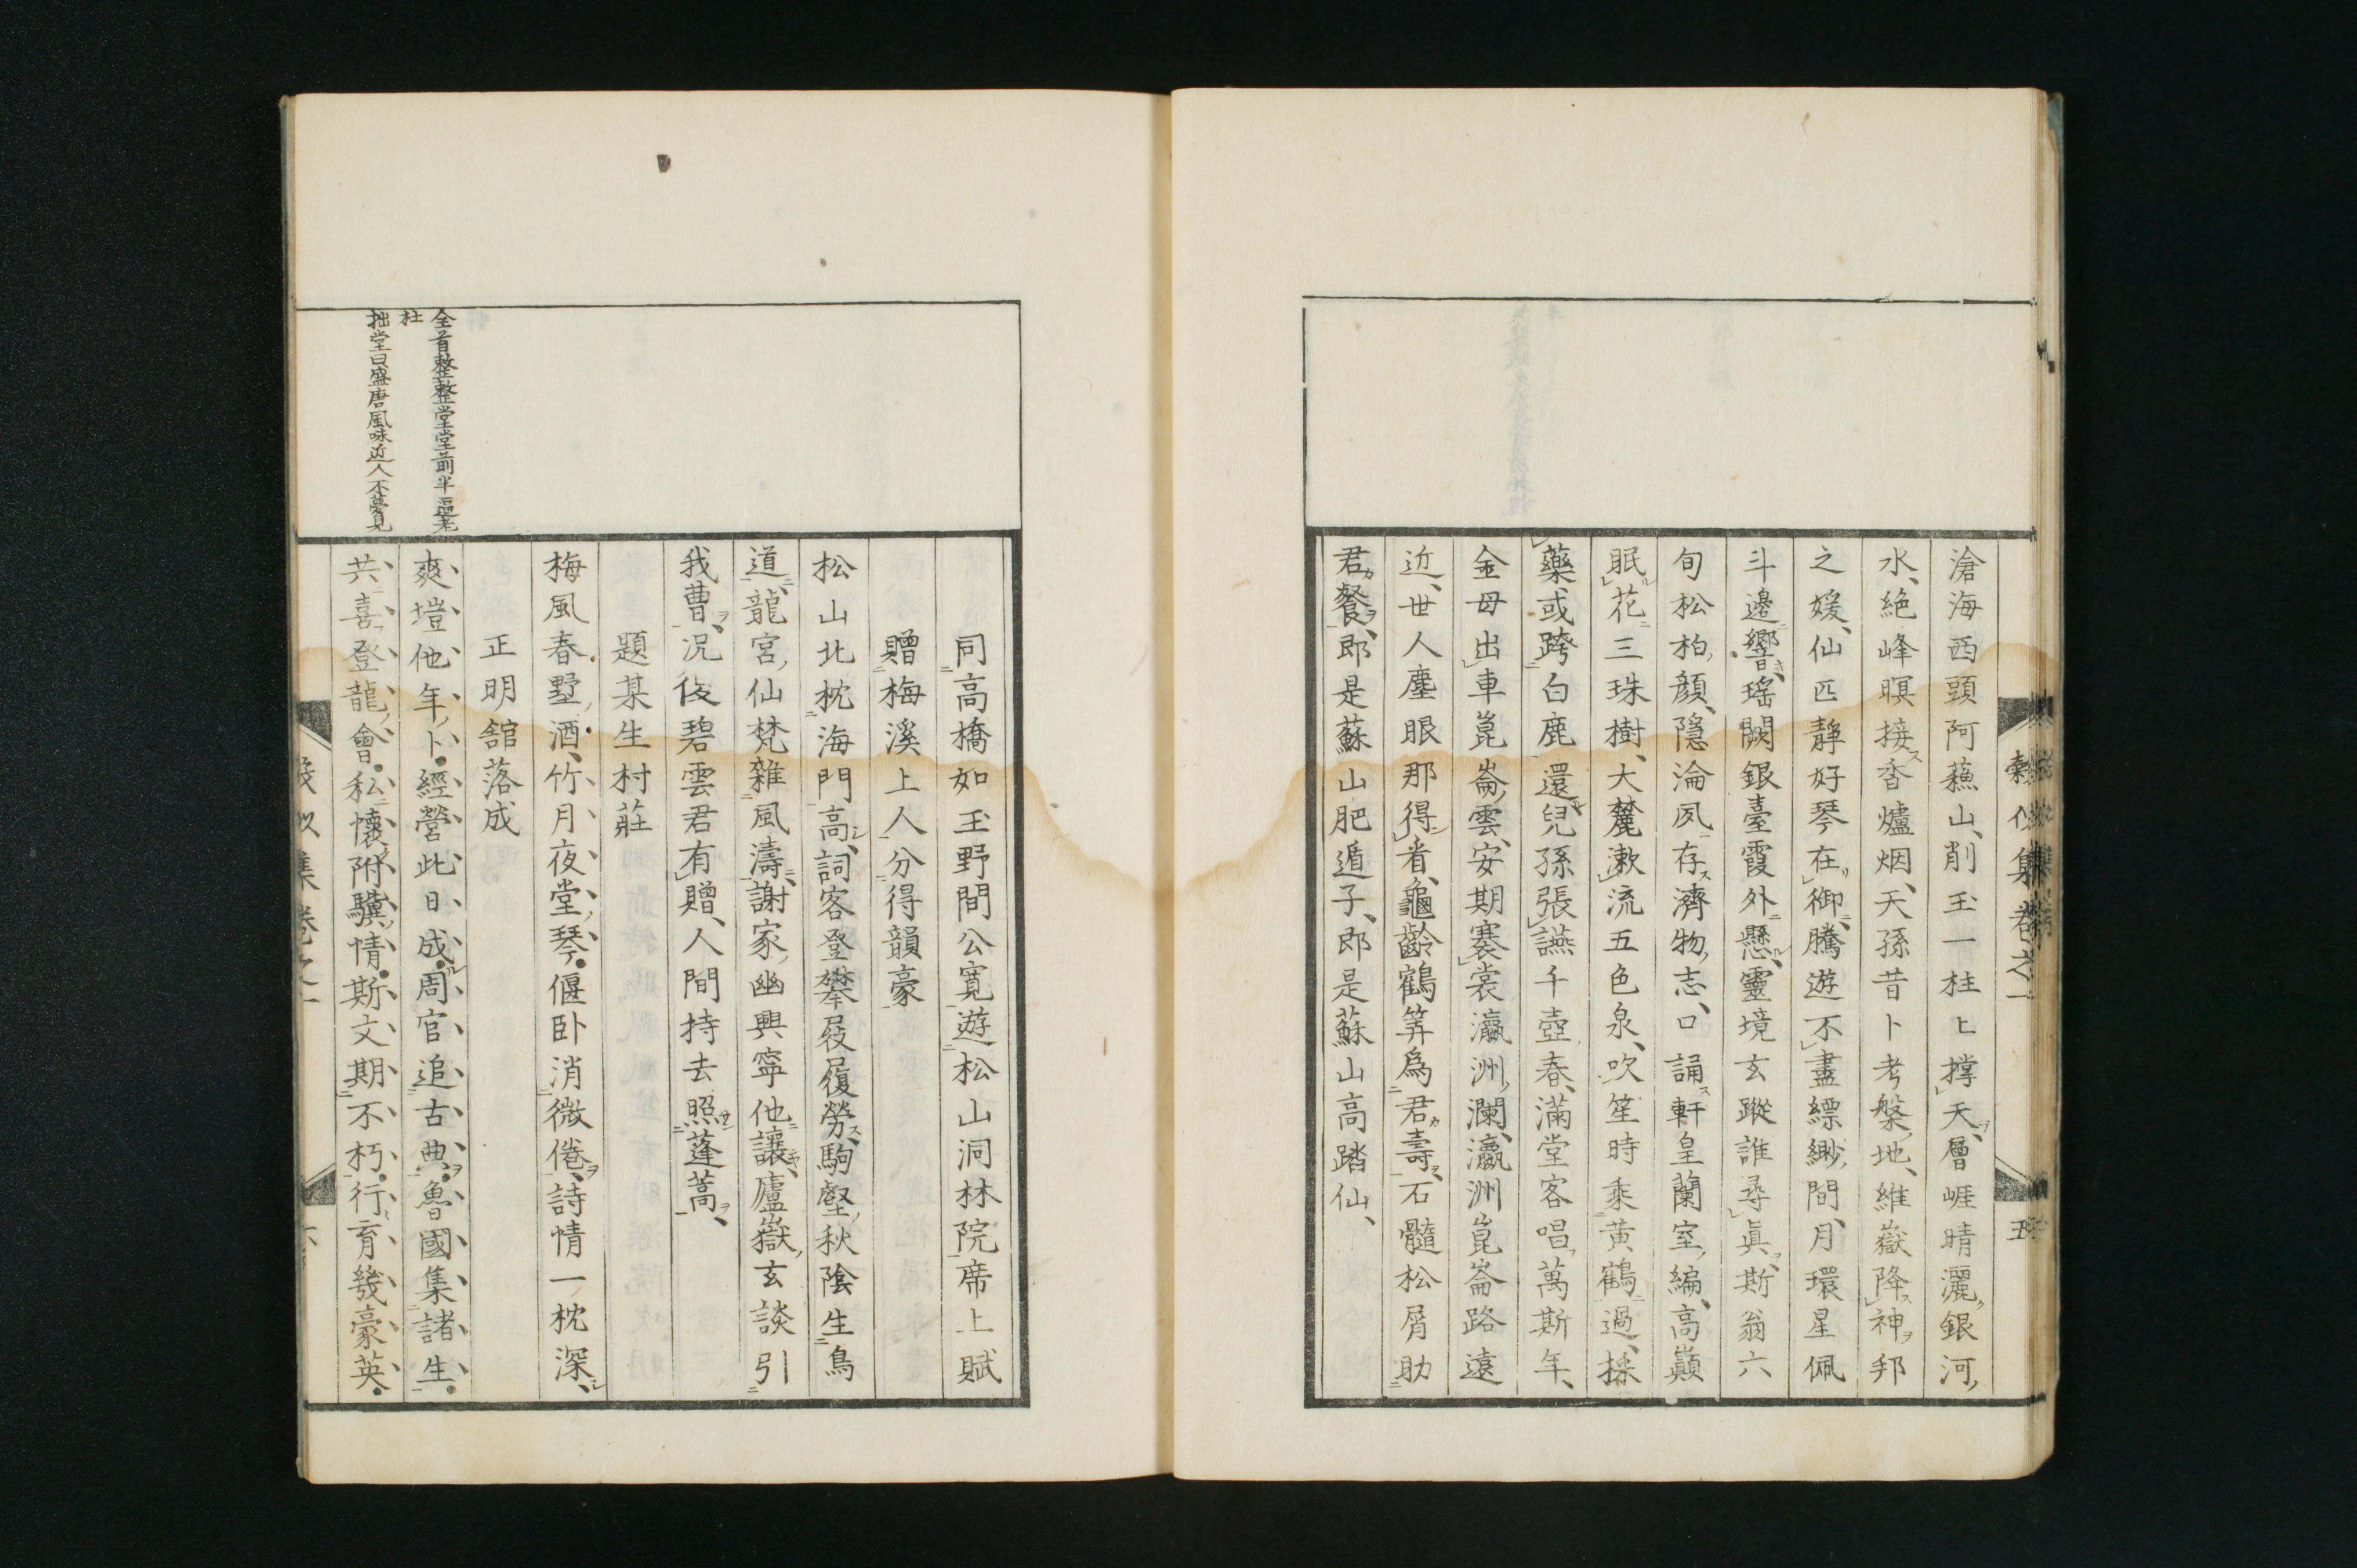 滄海西頭阿蘓山、削玉一柱上撑天、層崕晴灑銀河
水、絶峰暝接香爐烟、天孫昔卜考槃地、維嶽降神邦
之媛、仙匹静好琴在御、騰遊不盡縹緲間、月環星佩
斗邊響、瑶闕銀臺霞外懸、靈境玄蹤誰尋眞、斯翁六
旬松柏顔、隠淪夙存濟物志、口誦軒皇蘭室編、高巓
眠花三珠樹、大麓漱流五色泉、吹笙時乘黄鶴過、採
藥或跨白鹿還、兒孫張讌千壺春、滿堂客唱萬斯年、
金母出車崑崙雲、安期褰裳瀛洲瀾、瀛洲崑崙路遠
近、世人塵眼那得看、龜齡鶴筭爲君壽、石髓松屑助
君餐、即是蘇山肥遁子、即是蘇山高踏仙、
集卷之一
五
同高橋如玉野間公寛遊松山洞林院席上賦
贈梅溪上人分得韻豪
松山北枕海門高、詞客登攀屐履勞、駒壑秋陰生鳥
道、龍宮仙梵雜風濤、謝家幽興寧他讓、廬嶽玄談引
我曹、况復碧雲君有贈、人間持去照蓬蒿、
題某生村莊
梅風春墅酒、竹月夜堂琴、偃卧消微倦、詩情一枕深、
正明舘落成
全首整整堂堂前半逼老
杜
拙堂曰盛唐風味近人不夢見
爽塏他年卜經營此日成周官追古典魯國集諸生
共喜登龍會私懷附驥情斯文期不朽行育幾豪英
集卷之一